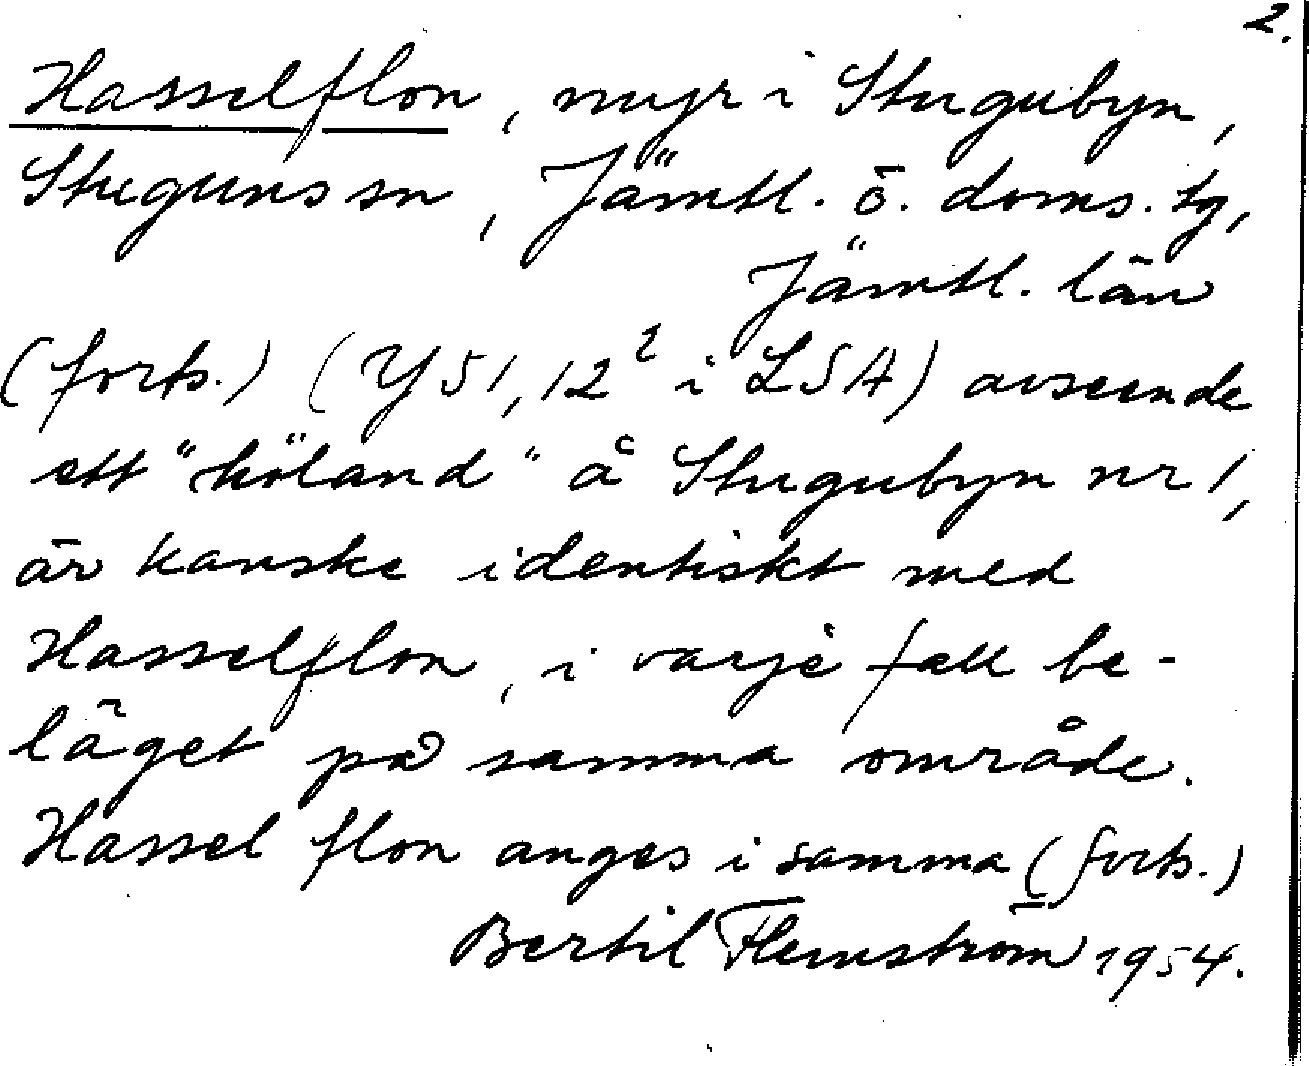 2.
Hasselflon, myr i Stugubyn,
Stuguns sn, Jämtl. ö. doms. tg,
Jämtl. län
(forts.) (Y 51, 12² i LSA) avseende
ett "höland" å Stugubyn nr 1,
är kanske identiskt med
Hasselflon, i varje fall be-
läget på samma område.
Hassel flon anges i samma (forts.)
Bertil Flemström 1954.